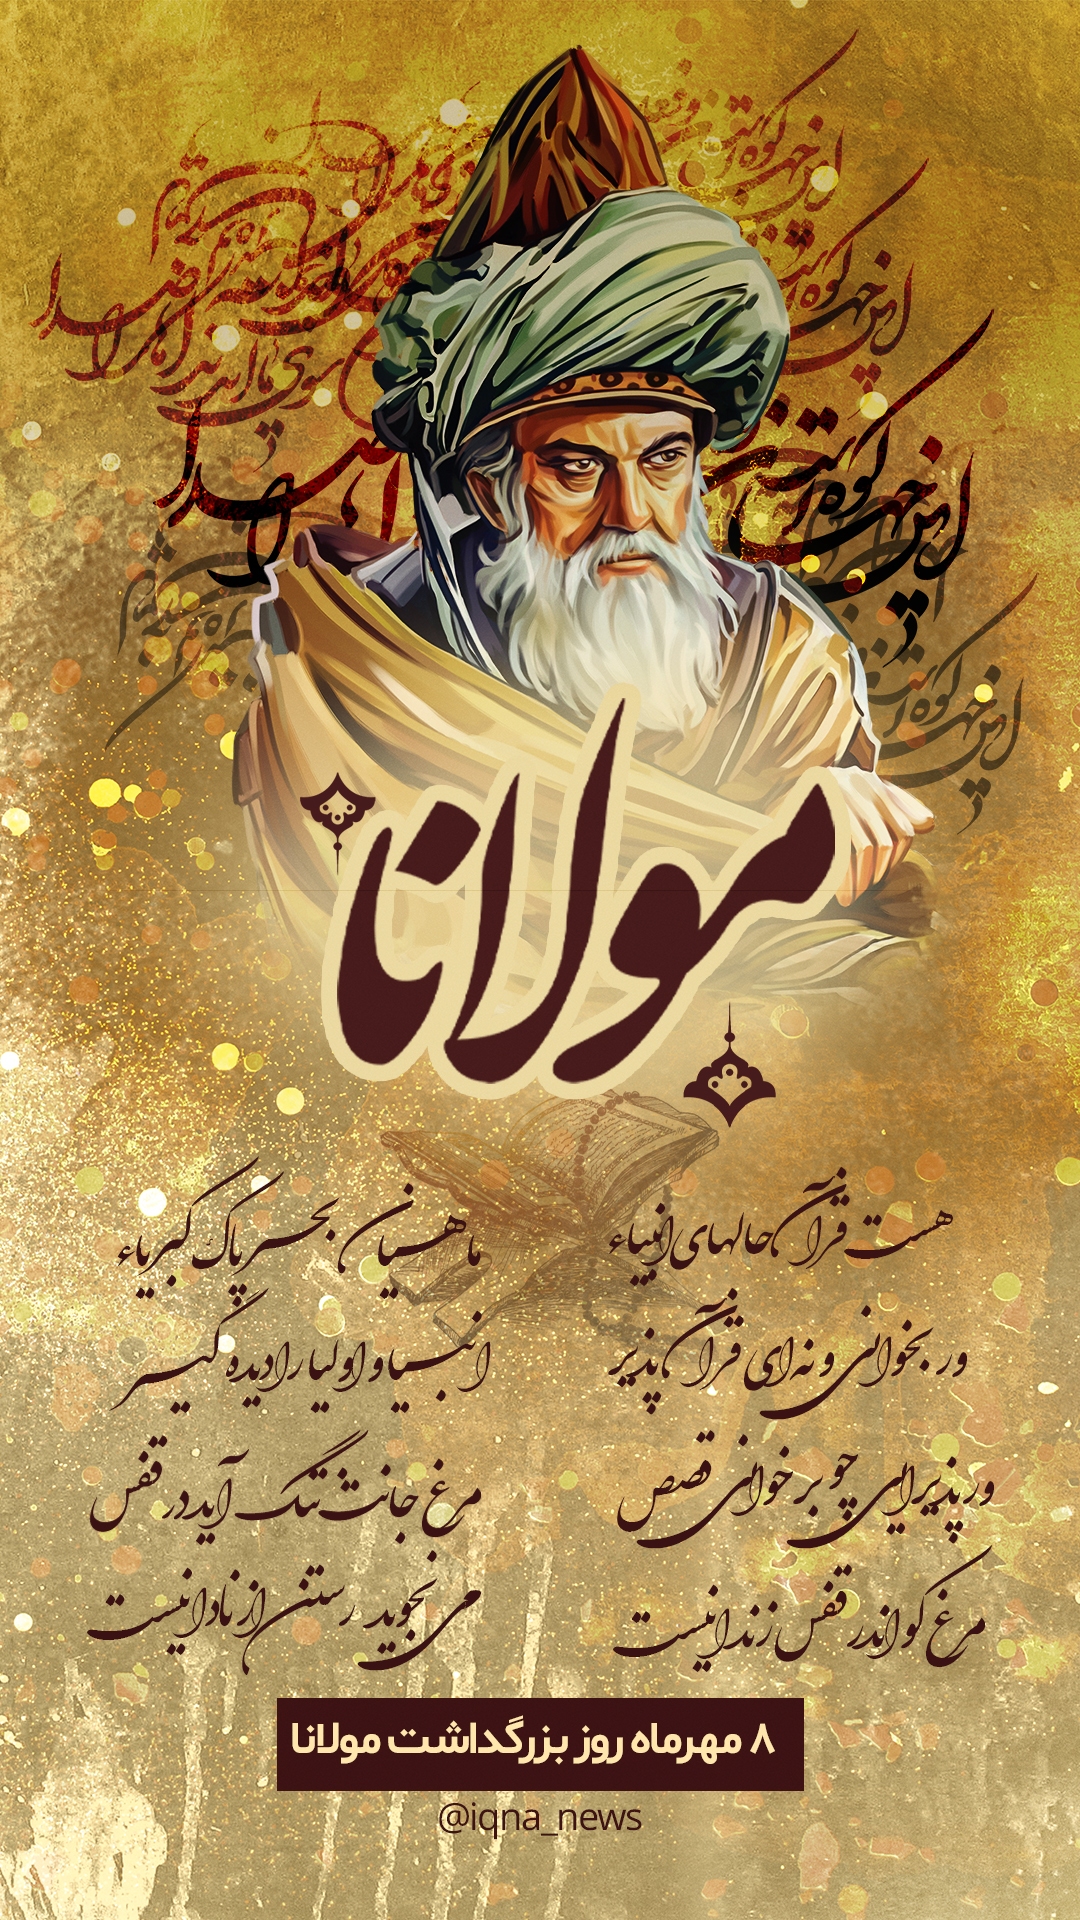 مولانا
هست قرآن حالهای انبیاء ماهیان بحر پاک کبریاء
ور بخوانی و نه‌ای قرآن پذیر انبیا و اولیا را دیده گیر
ور پذیرایی چو بر خوانی قصص مرغ جانت تنگ آید در قفس
مرغ کو اندر قفس زندانیست می‌نجوید رستن از نادانیست
۸ مهرماه روز بزرگداشت مولانا
@iqna_news